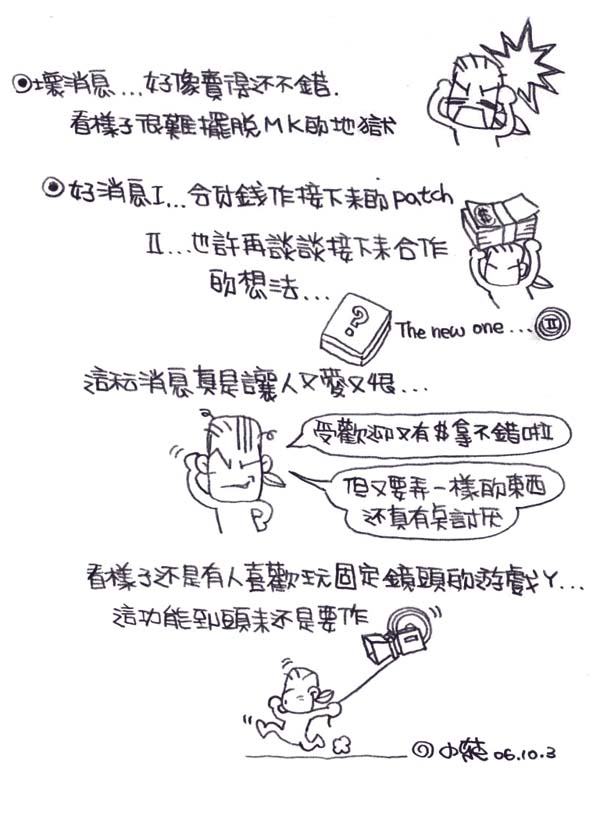 壞消息...好像賣得还不錯.
看樣子很難擺脫MK的地獄
好消息I...会付錢作接下來的patch
II...也許再談談接下來合作
的想法...
$
?
The new one... II
這种消息真是讓人又愛又恨...
受歡迎又有$拿不錯啦
但又要弄一樣的東西
还真有点討厌
看樣子还是有人喜歡玩固定鏡頭的遊戲丫...
這功能到頭來还是要作
06.10.3